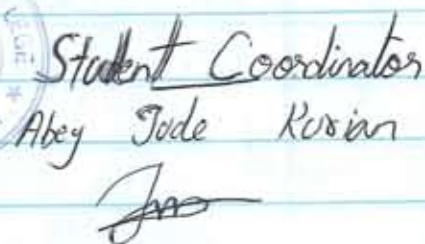 Student Coordinator
Abey Jude Kurian